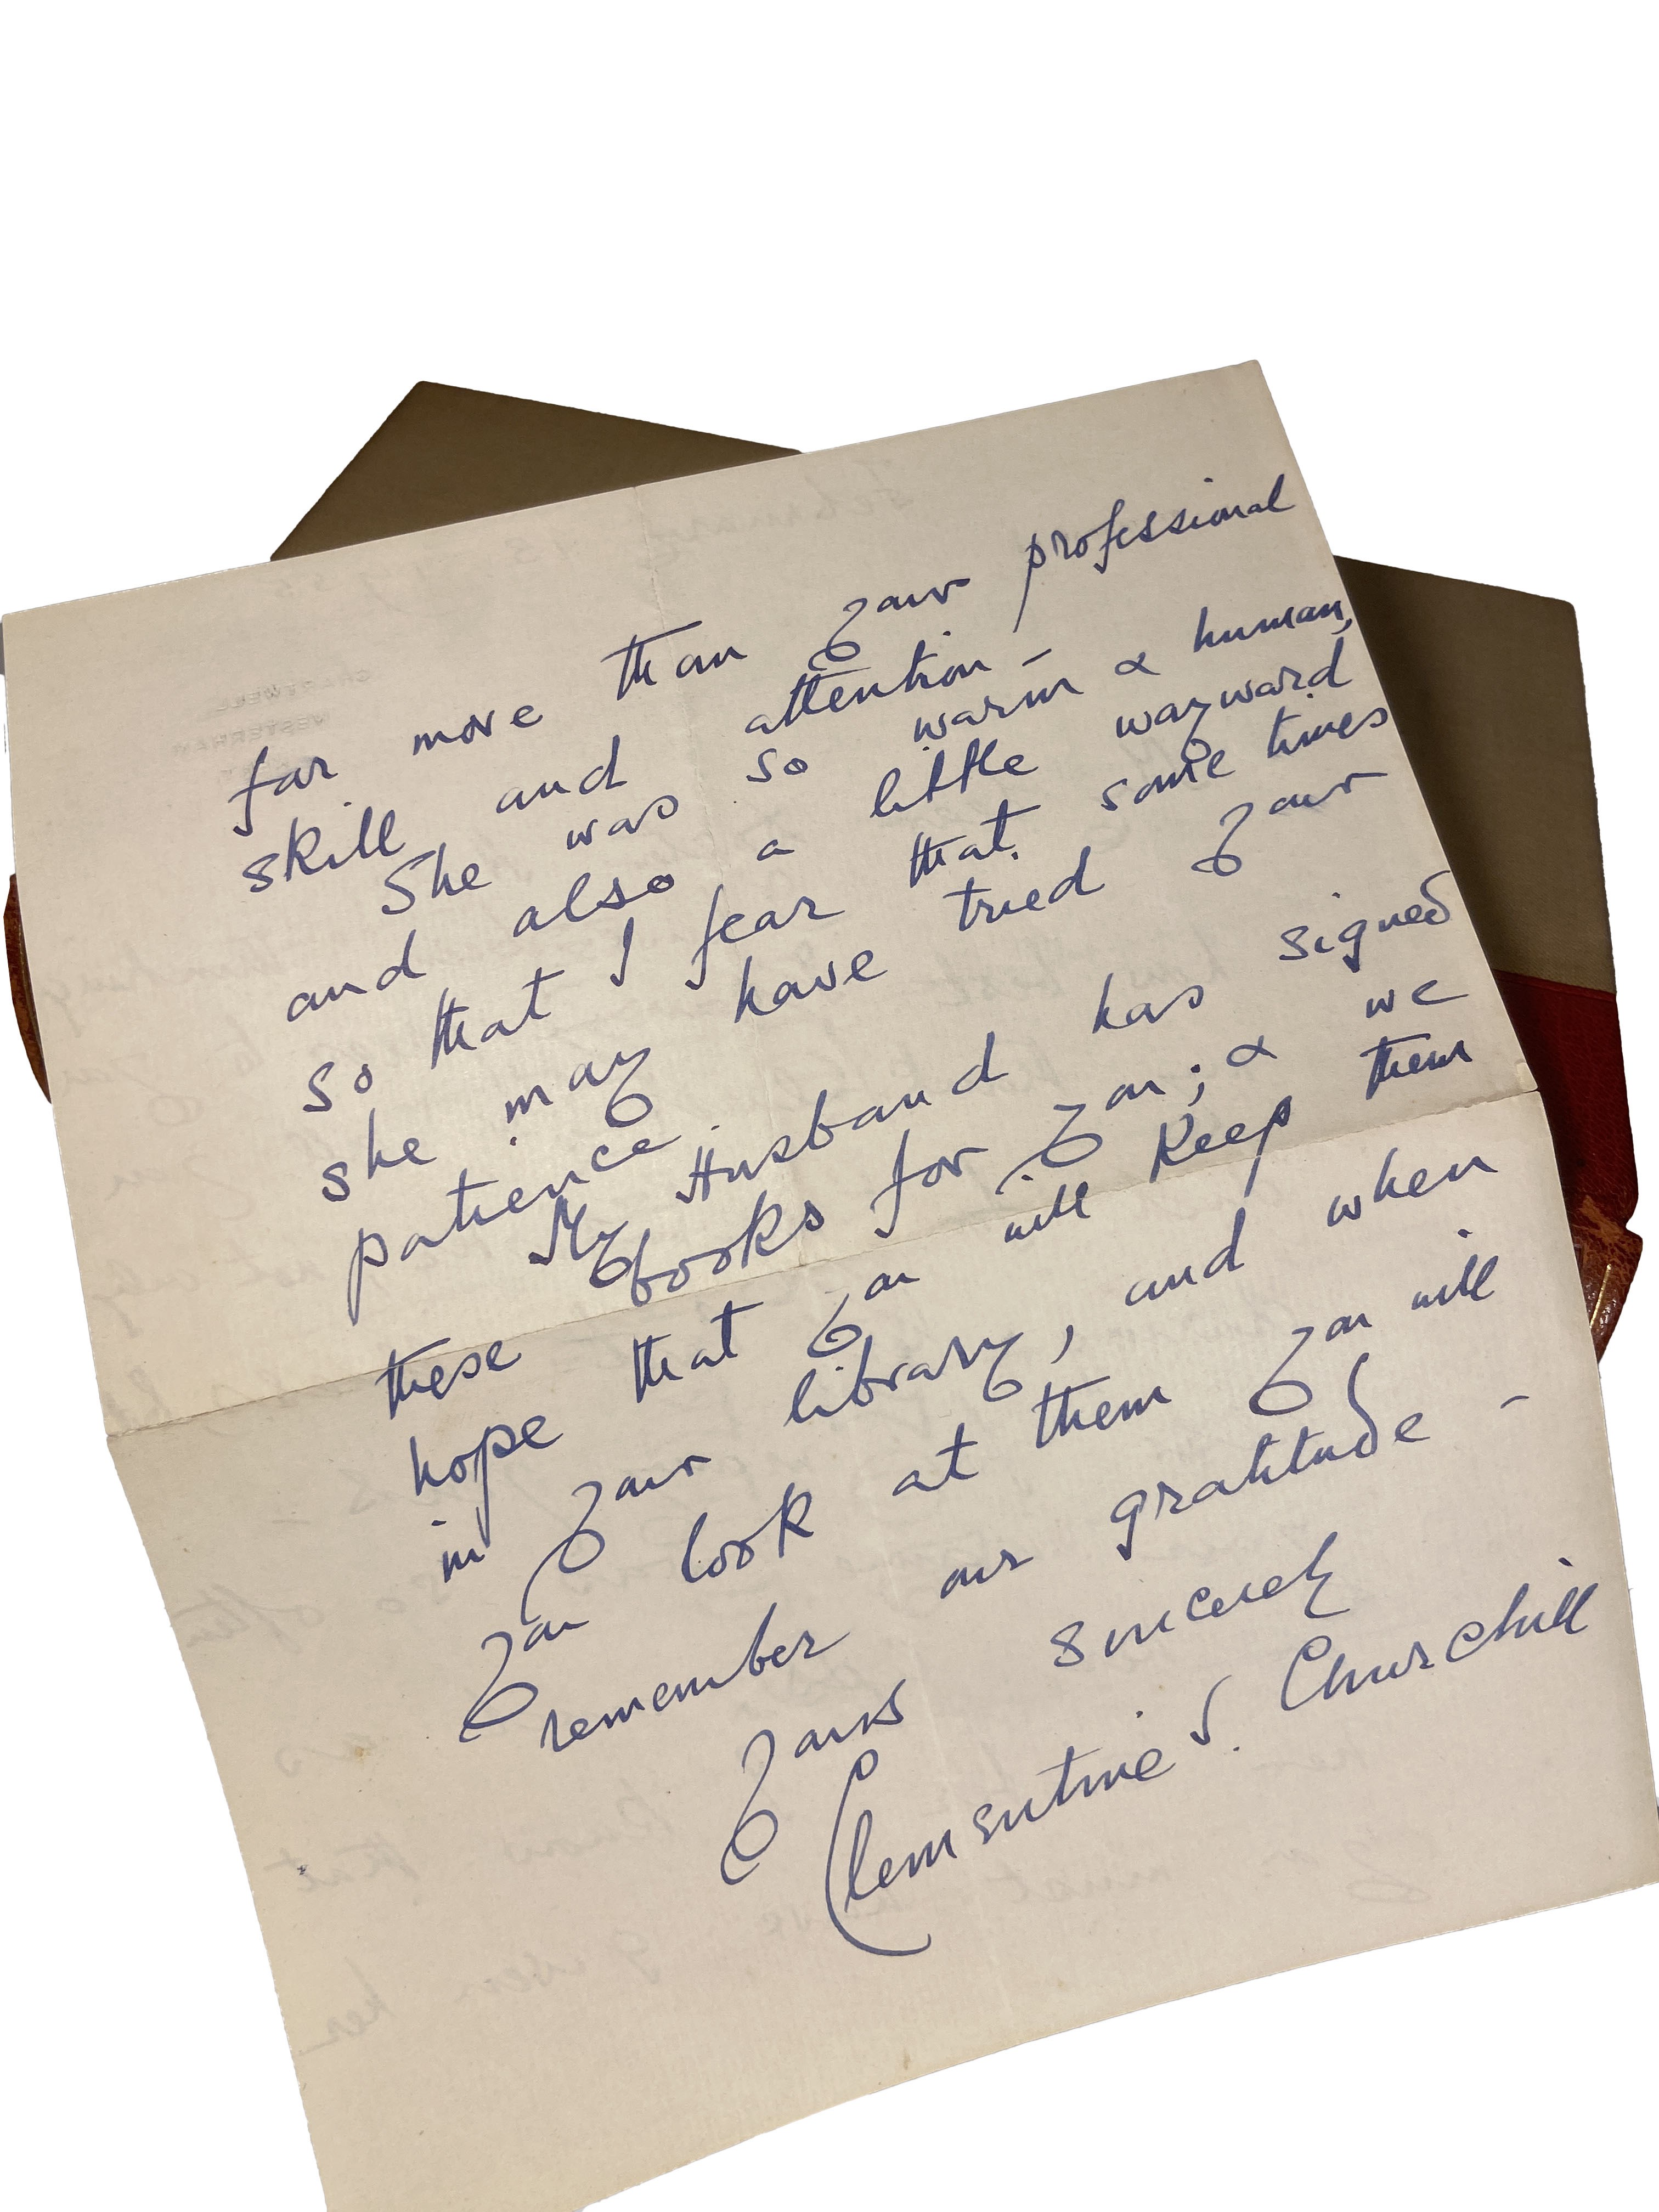 far more than your professional
skill and attention –
She was so warm & human,
and also a little wayward
so that I fear that some times
she may have tried your
patience.
My Husband has signed
these books for you; & we
hope that you will keep them
in your library, and when
you look at them you will
remember our gratitude –
Yours sincerely
Clementine S. Churchill
CHARTWELL
WESTERHAM